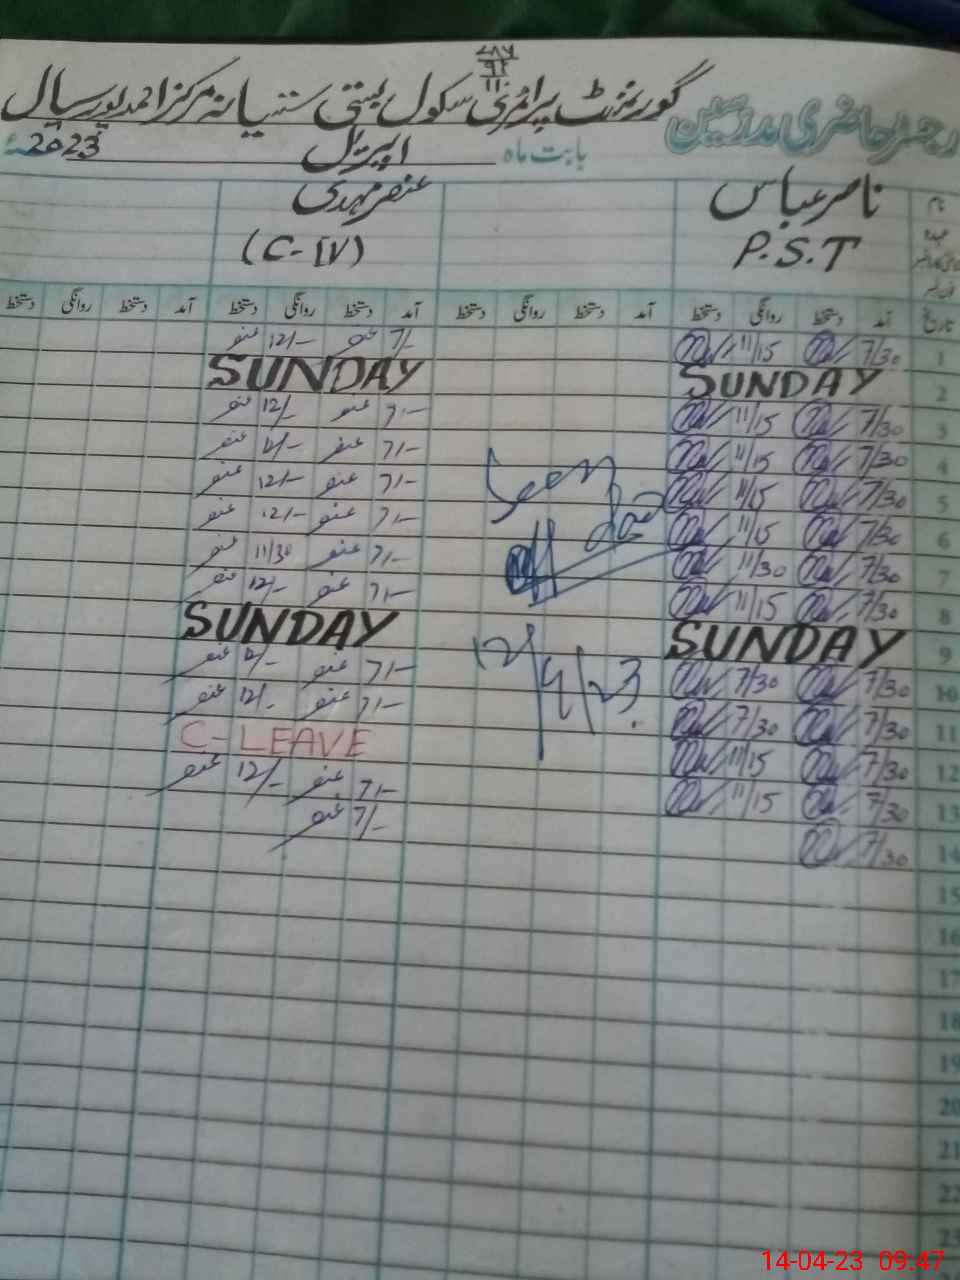 ۷۸۶
۹۲
۱۱۰
رجسٹر حاضری مدرسین گورنمنٹ پرائمری سکول بستی سنتیانہ مرکز احمد پور سیال
بابت ماہ اپریل 2023ء
نام ناصر عباس عنصر مہدی
عہدہ P.S.T (C-IV)
تاریخ آمد دستخط روانگی دستخط آمد دستخط روانگی دستخط آمد دستخط روانگی دستخط
1 7/30 11/15 7/- عنصر 12/- عنصر
2 SUNDAY SUNDAY
3 7/30 11/15 7/- عنصر 12/- عنصر
4 7/30 11/15 7/- عنصر 12/- عنصر
5 7/30 11/15 7/- عنصر 12/- عنصر
6 7/30 11/15 7/- عنصر 12/- عنصر
7 7/30 11/30 7/- عنصر 11/30 عنصر
8 7/30 11/15 7/- عنصر 12/- عنصر
9 SUNDAY SUNDAY
10 7/30 7/30 7/- عنصر 12/- عنصر
11 7/30 7/30 7/- عنصر 12/- عنصر
12 7/30 11/15 C-LEAVE
13 7/30 11/15 7/- عنصر 12/- عنصر
14 7/30 7/- عنصر
Seen
12/4/23
15
16
17
18
19
20
21
22
23
14-04-23 09:47